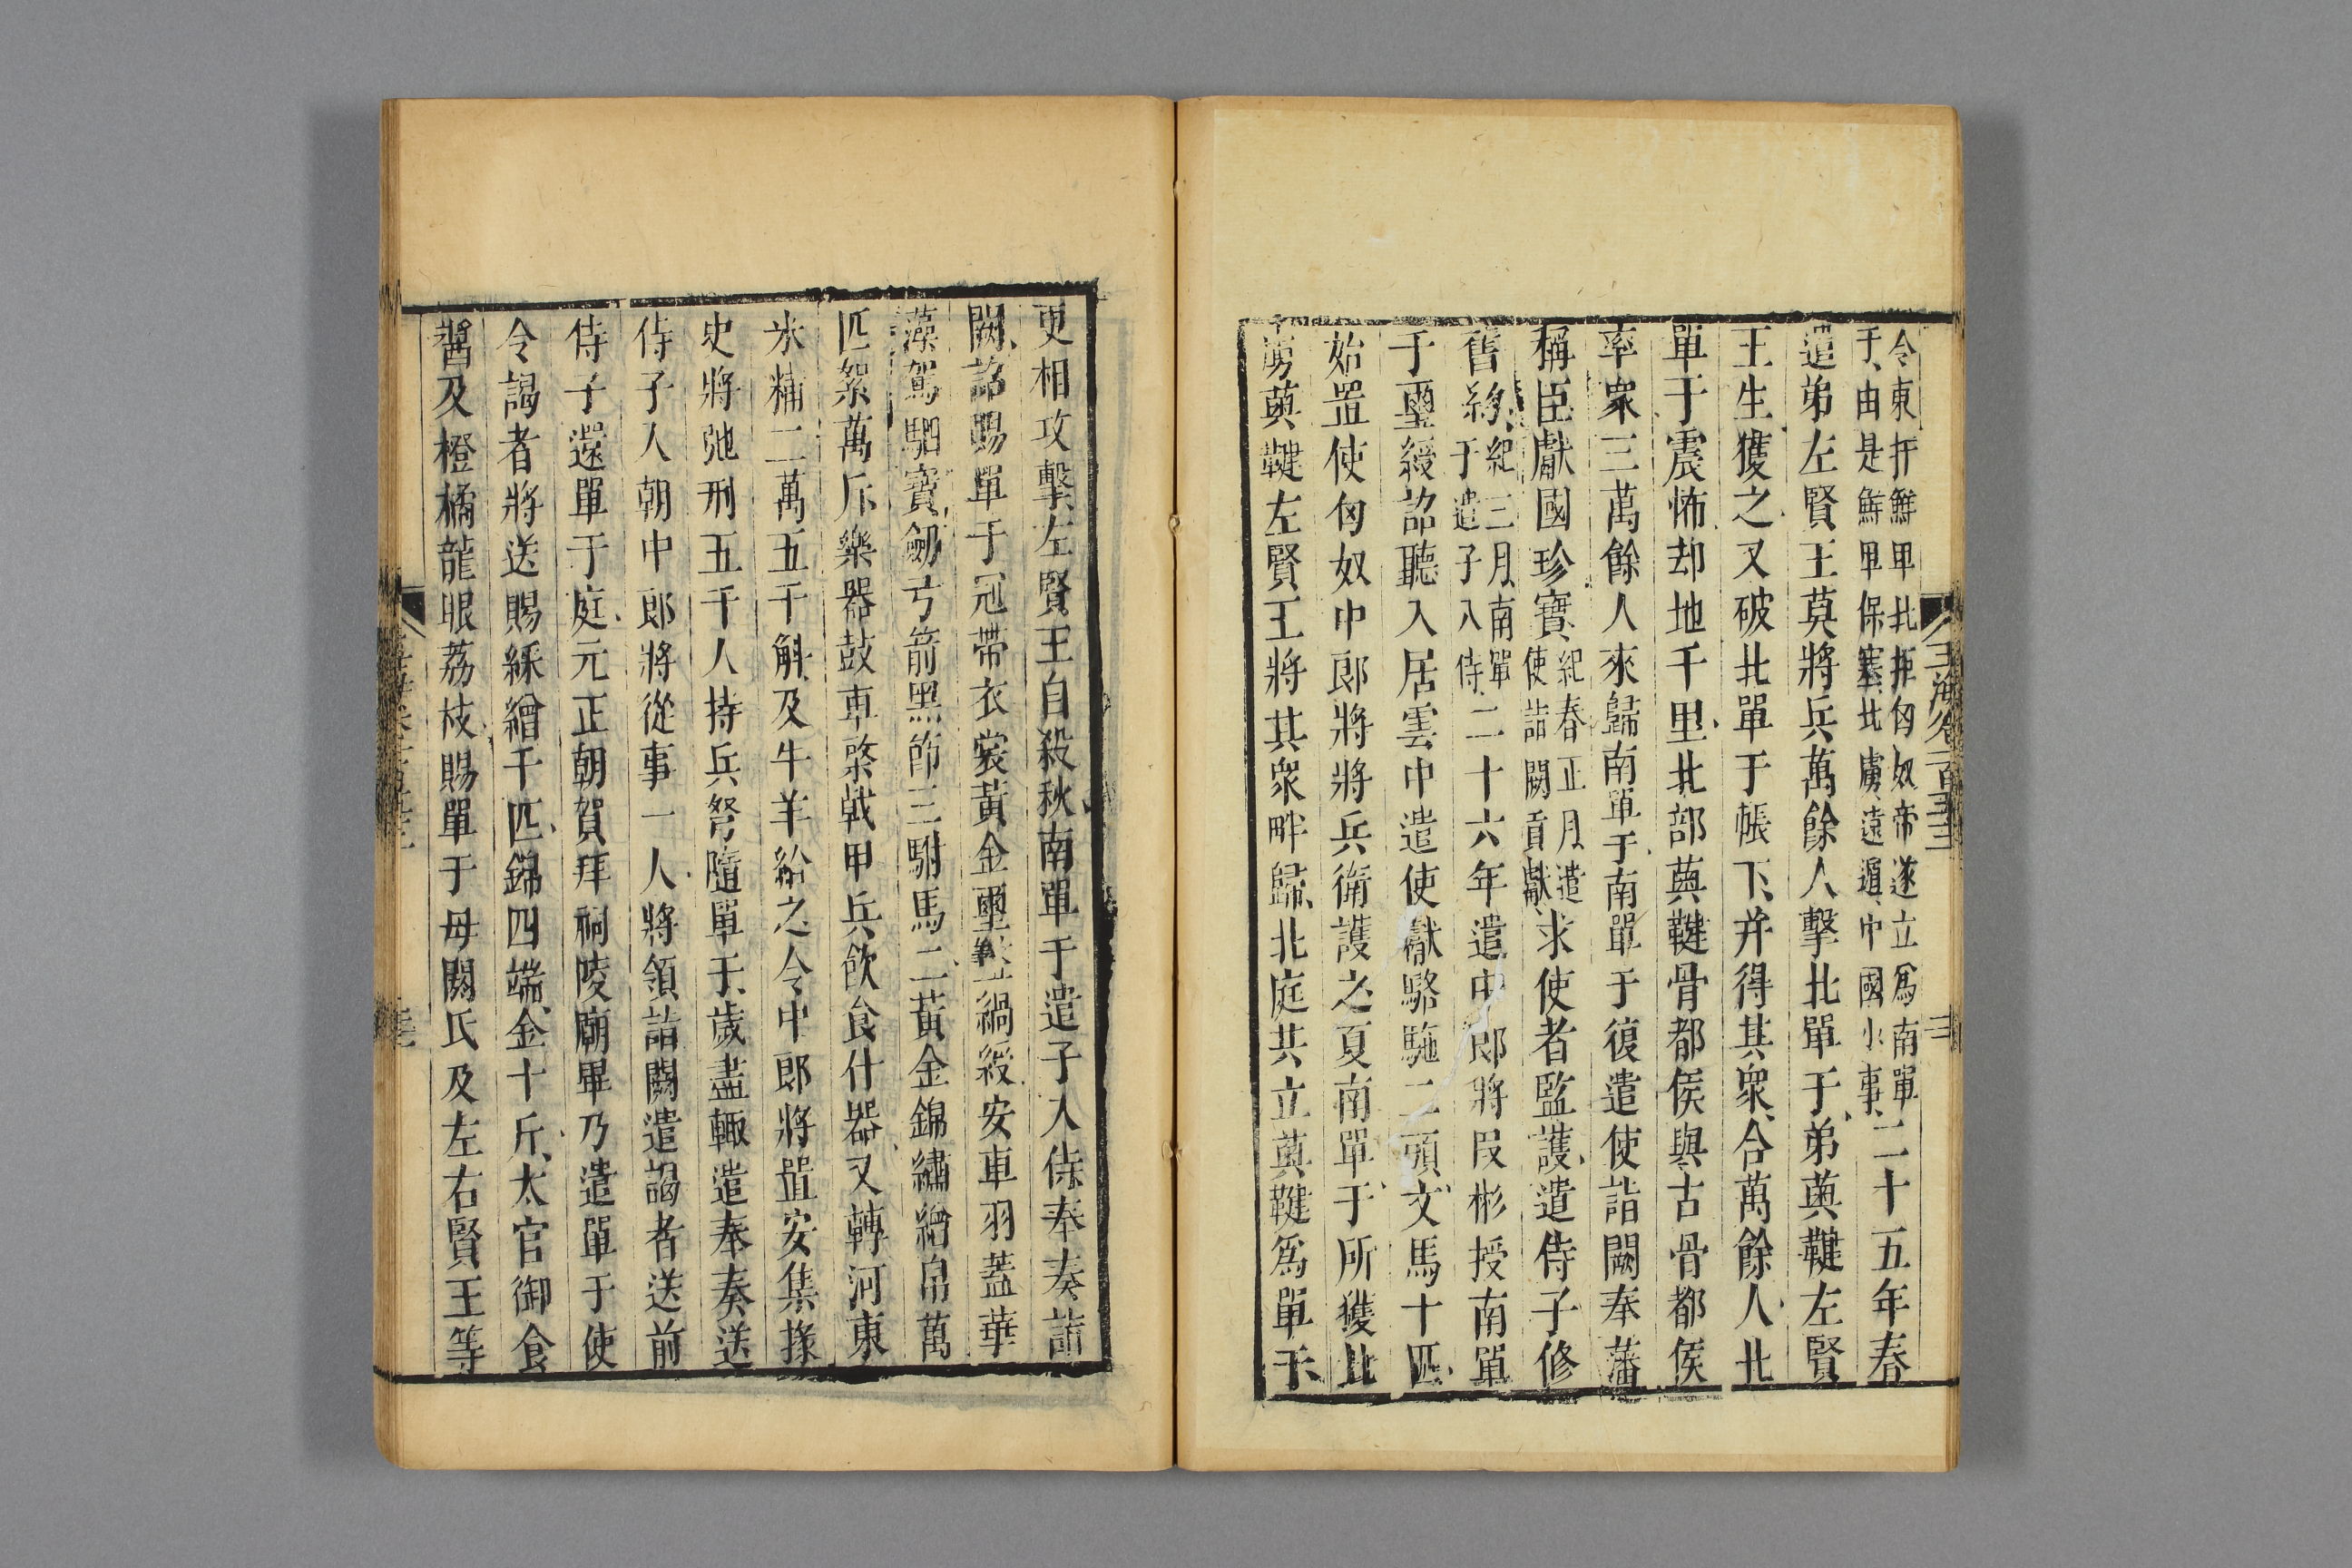 令東扞鮮卑北拒匈奴帝遂立爲南單
于由是鮮卑保塞北虜遠遁中國少事二十五年春
遣弟左賢王莫將兵萬餘人擊北單于弟薁鞬左賢
王生獲之又破北單于帳下并得其衆合萬餘人北
單于震怖却地千里北部薁鞬骨都侯與古骨都侯
率衆三萬餘人來歸南單于南單于復遣使詣闕奉藩
稱臣獻國珍寶紀春正月遣
使詣闕貢獻求使者監護遣侍子修
舊約紀三月南單
于遣子入侍二十六年遣中郎將叚彬授南單
于璽綬詔聽入居雲中遣使獻駱駞二頭文馬十匹
始置使匈奴中郎將將兵衛護之夏南單于所獲北
虜薁鞬左賢王將其衆畔歸北庭共立薁鞬爲單于
更相攻擊左賢王自殺秋南單于遣子入侍奉奏詣
闕詔賜單于冠帶衣裳黃金璽緺綬安車羽蓋華
藻駕駟寶劒弓箭黑節三駙馬二黃金錦繡繒帛萬
匹絮萬斤樂器鼓車棨戟甲兵飲食什器又轉河東
米糒二萬五千斛及牛羊給之令中郎將置安集掾
史將弛刑五千人持兵弩隨單于歲盡輒遣奉奏送
侍子入朝中郎將從事一人將領詣闕遣謁者送前
侍子還單于庭元正朝賀拜祠陵廟畢乃遣單于使
令謁者將送賜綵繒千匹錦四端金十斤太官御食
醬及橙橘龍眼荔枝賜單于母閼氏及左右賢王等